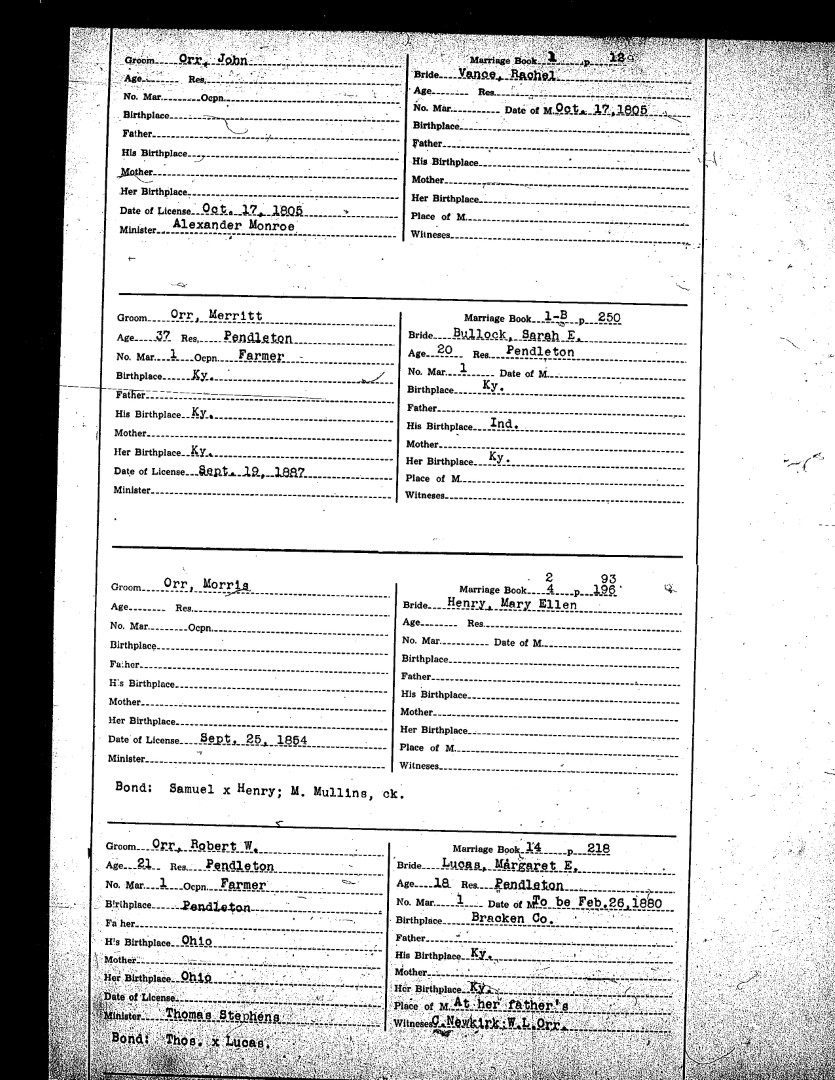 Groom Orr, John
Age Res.
No. Mar. Ocpn.
Birthplace
Father
His Birthplace
Mother
Her Birthplace
Date of License Oct. 17, 1805
Minister Alexander Monroe
Marriage Book 1 p.
Bride Vance, Rachel
Age Res.
No. Mar. Date of M. Oct. 17, 1805
Birthplace
Father
His Birthplace
Mother
Her Birthplace
Place of M.
Witneses
Groom Orr, Merritt
Age 37 Res. Pendleton
No. Mar. 1 Ocpn. Farmer
Birthplace Ky.
Father
His Birthplace Ky.
Mother
Her Birthplace Ky.
Date of License Sept. 19, 1887
Minister
Marriage Book 1-B p 250
Bride Bullock, Sarah E.
Age 20 Res. Pendleton
No. Mar. 1 Date of M.
Birthplace Ky.
Father
His Birthplace Ind.
Mother
Her Birthplace Ky.
Place of M.
Witneses
Groom Orr, Morris
Age Res.
No. Mar. Ocpn.
Birthplace
Father
His Birthplace
Mother
Her Birthplace
Date of License Sept. 25, 1854
Minister
2 93
Marriage Book 4 p. 196
Bride Henry, Mary Ellen
Age Res.
No. Mar. Date of M.
Birthplace
Father
His Birthplace
Mother
Her Birthplace
Place of M.
Witneses
Bond: Samuel x Henry; M. Mullins, ck.
Groom Orr, Robert W.
Age 21 Res. Pendleton
No. Mar. 1 Ocpn. Farmer
Birthplace Pendleton
Father
His Birthplace Ohio
Mother
Her Birthplace Ohio
Date of License
Minister Thomas Stephens
Marriage Book 14 p 218
Bride Lucas, Margaret E.
Age 18 Res. Pendleton
No. Mar. 1 Date of M. To be Feb.26,1880
Birthplace Bracken Co.
Father
His Birthplace Ky.
Mother
Her Birthplace Ky.
Place of M. At her father's
Witneses C. Newkirk; W.L. Orr.
Bond: Thos. x Lucas.